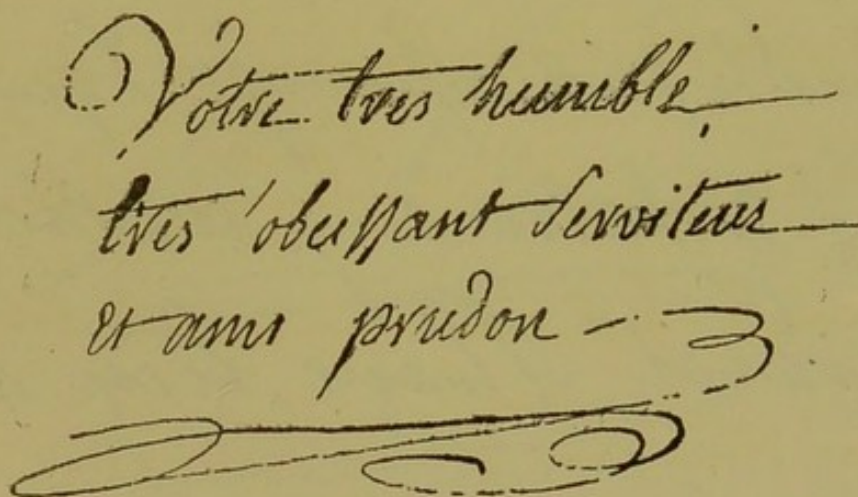 Votre tres humble,
tres obeissant Serviteur
et ami prudon